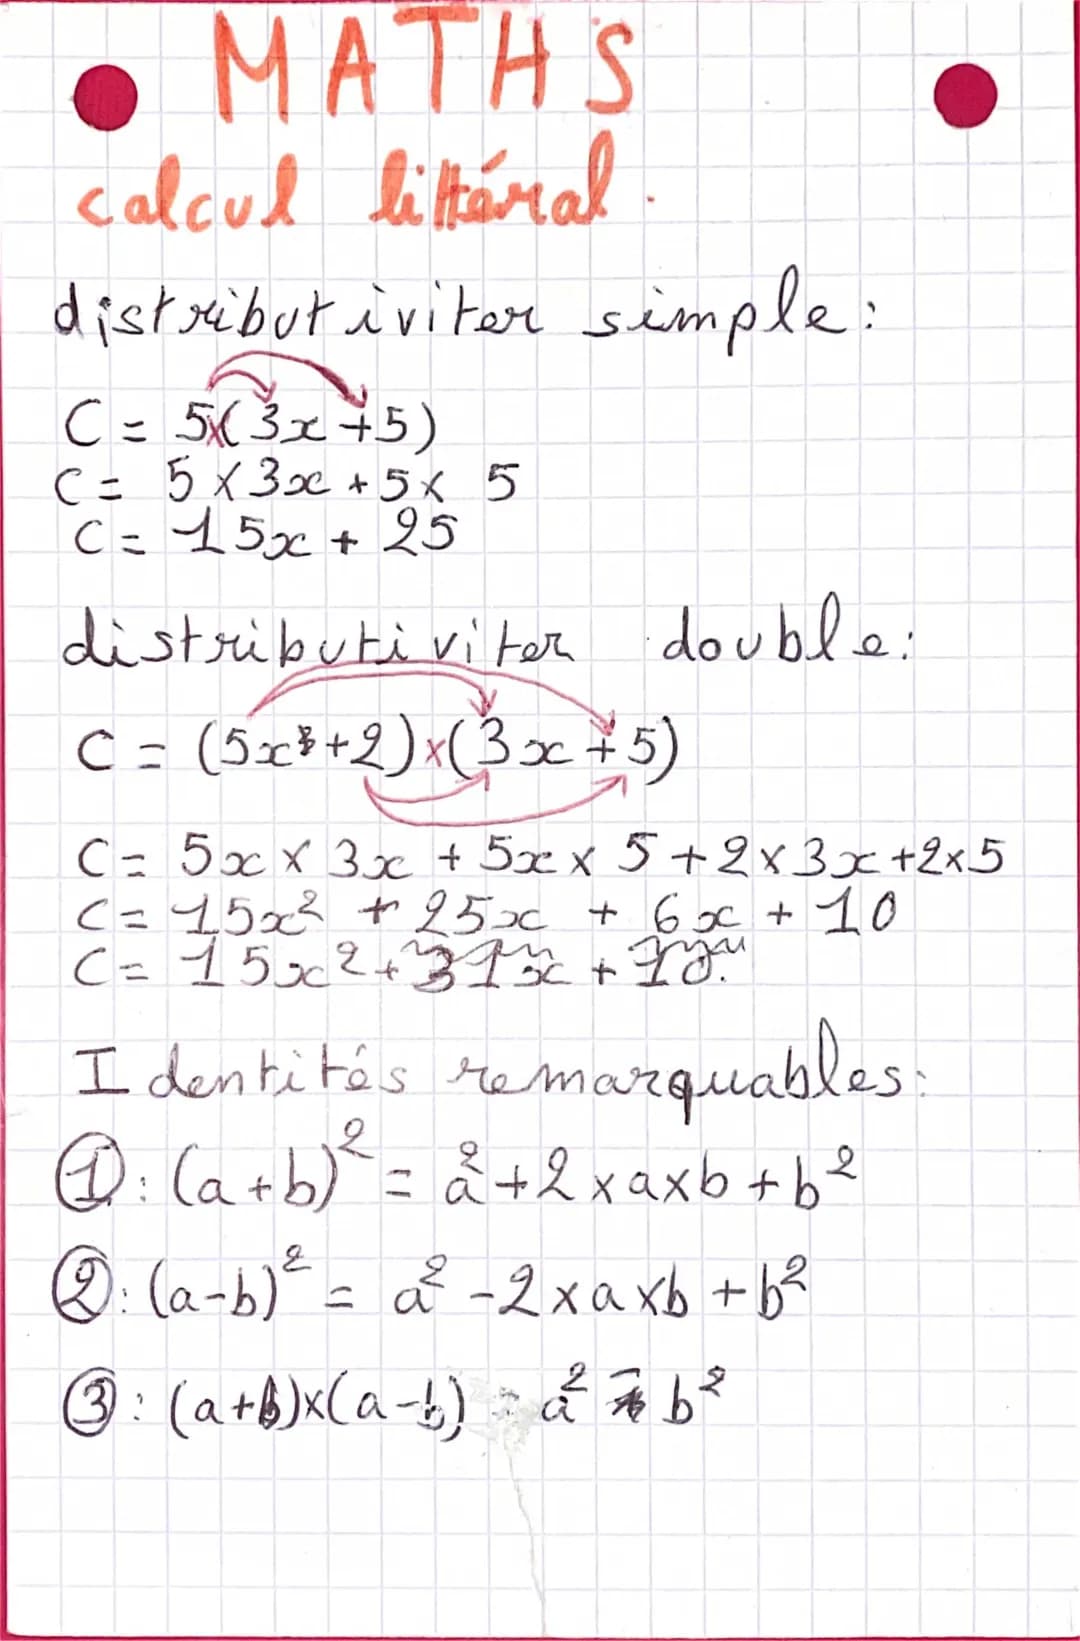 MATHS
calcul littéral.
distributiviter simple:
C = 5x(3x+5)
C = 5x3x+5x 5
C = 15x + 25
distributiviter double:
C = (5x+2)x(3x+5)
C = 5x x 3x + 5x x 5 + 2x3x+2x5
C = 15x² + 25x + 6x + 10
C = 15x²+31x + 10.
Identités remarquables:
①: (a+b)² = a²+2xaxb+b²
②: (a-b)² = a²-2xaxb+b²
③: (a+b)x(a-b) = a² - b²